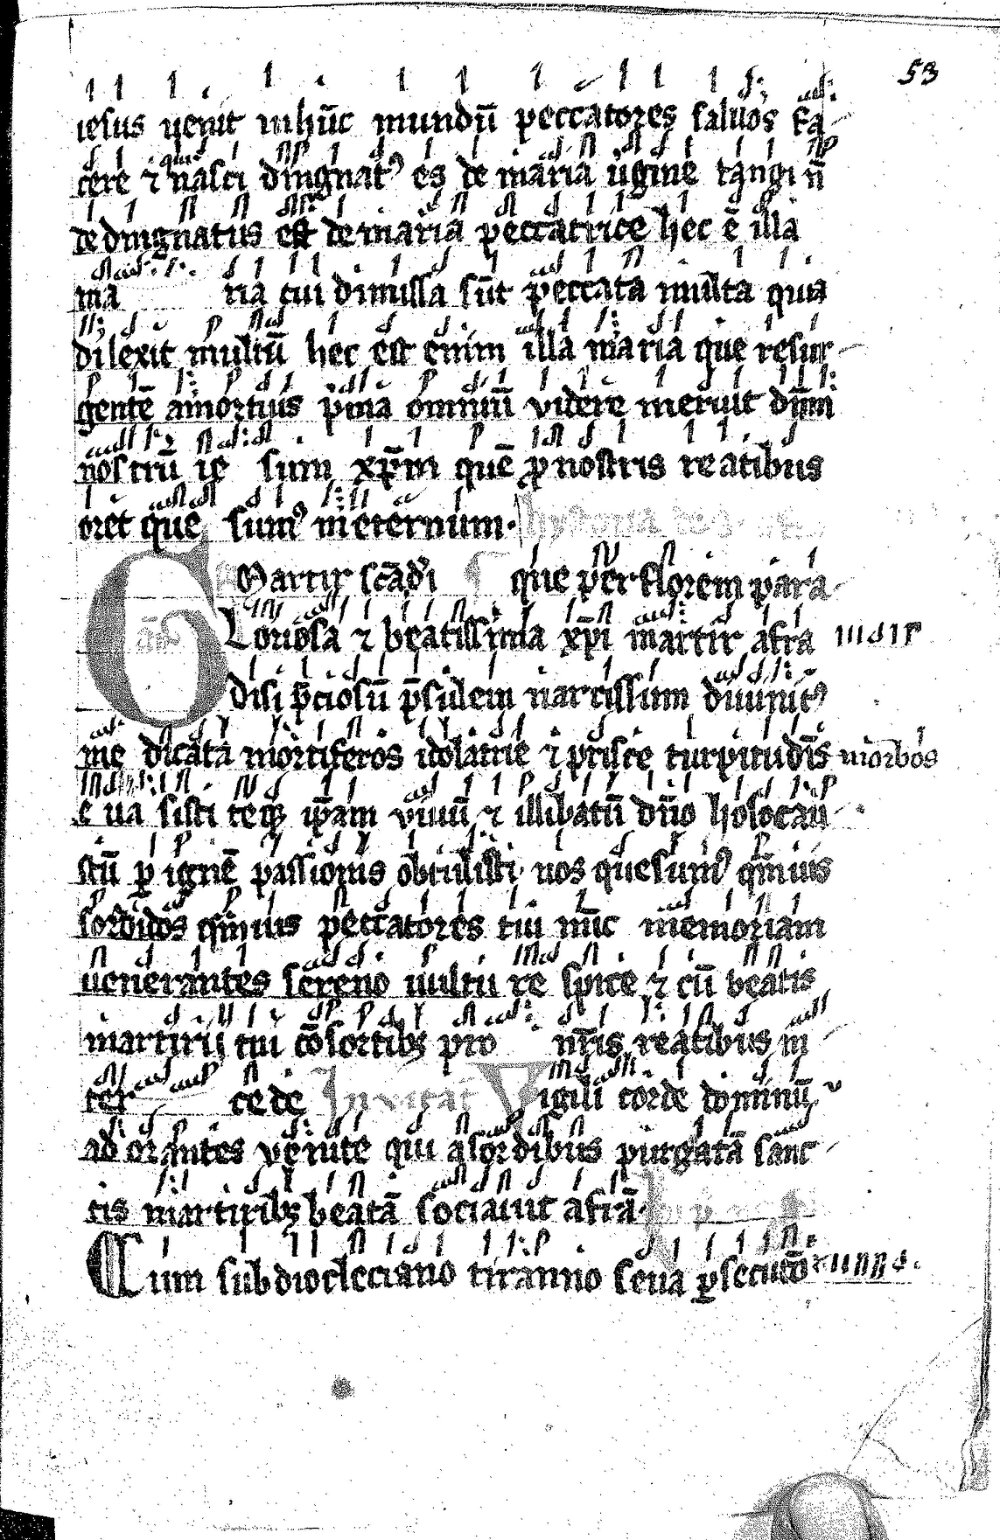 53
iesus uenit inhūc mundū peccatores saluos fa
cere ⁊ nasci dingnatꝰ es de maria uˈgine tangi n̄
dedingnatus est de maria peccatrice hec ē illa
ma ria cui dimissa sūt peccata multa quia
dilexit multū hec est enim illa maria que resur
gentē amortuis pˈma omniū videre meruit dn̄m
nostrū ie sum xp̄m quē ꝓ nostris reatibus
oret que sumꝰ in eternum.
hystoria de s.
Martir scādi que per florem para
Gloriosa ⁊ beatissima xp̄i martir afra
disi p̄ciosū p̄sulem narcissum diuinitꝰ
me dicata mortiferos idolatrie ⁊ prisce turpitudīs morbos
e ua sisti teqꝫ ip̄am viuū ⁊ illibatū dn̄o holocau
stū ꝑ ignē passionis obtulisti nos quesumꝰ qm̄uis
sordidos qm̄uis peccatores tui nūc memoriam
uenerantes sereno uultu re spice ⁊ cū beatis
martirij tui cōsortibꝫ pro nr̄is reatibus in
ter cede Inuitat Vigili corde dominū
ad orantes venite qui asordibus purgatā sanc
tis martiribꝫ beatā sociauit afrā.
Cum sub diocleciano tiranno seua ꝑsecutō